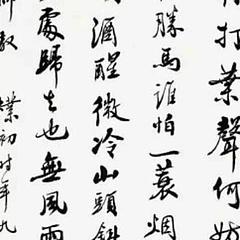 打葉聲何妨
勝馬誰怕一蓑烟
酒醒微冷山頭斜
處歸去也無風雨
初時年九